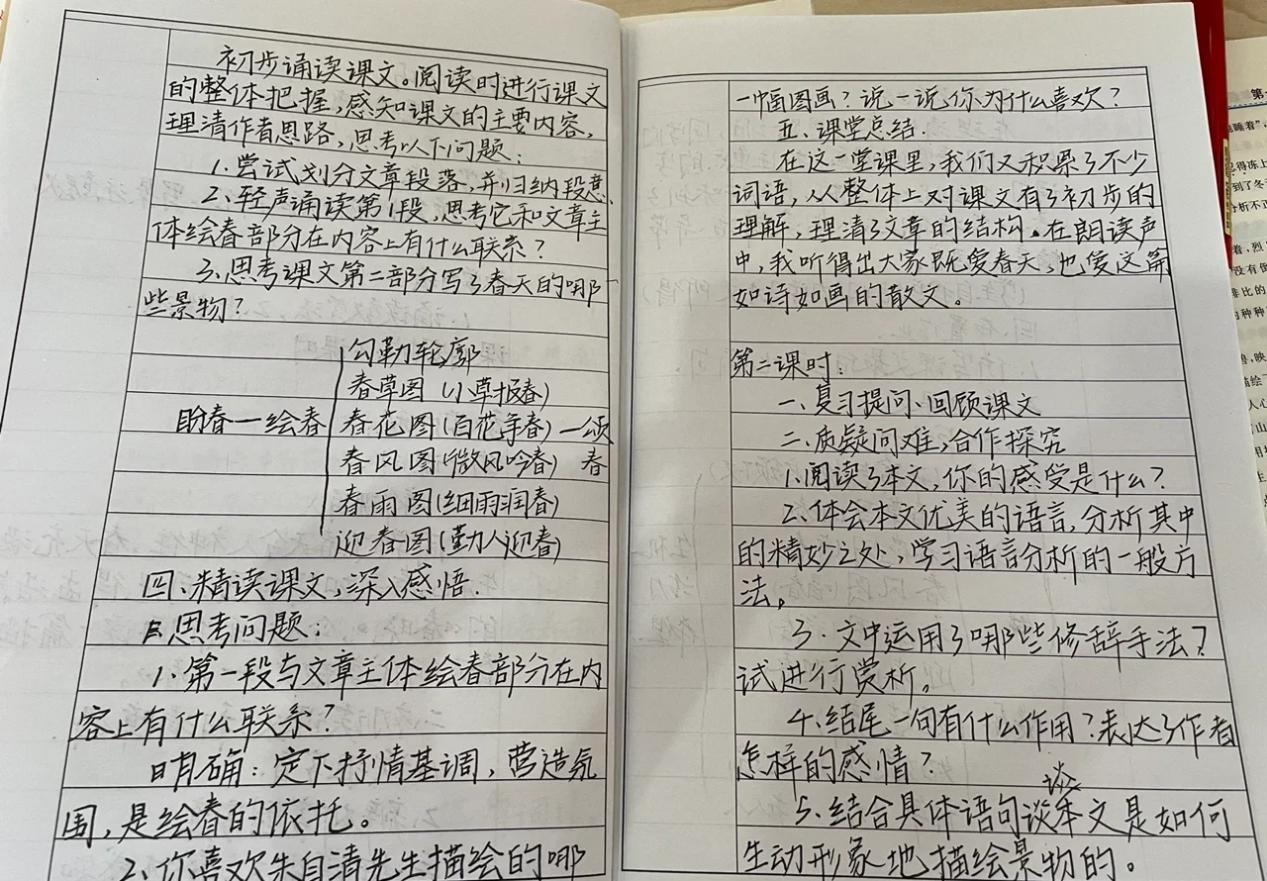 初步诵读课文。阅读时进行课文
的整体把握,感知课文的主要内容,
理清作者思路,思考以下问题:
1.尝试划分文章段落,并归纳段意.
2.轻声诵读第1段,思考它和文章主
体绘春部分在内容上有什么联系?
3.思考课文第二部分写了春天的哪
些景物?
勾勒轮廓
春草图(小草报春)
盼春一绘春 春花图(百花争春)一颂
春风图(微风吟春) 春
春雨图(细雨润春)
迎春图(勤人迎春)
四、精读课文,深入感悟.
思考问题:
1.第一段与文章主体绘春部分在内
容上有什么联系?
明确:定下抒情基调,营造氛
围,是绘春的依托。
2、你喜欢朱自清先生描绘的哪
一幅图画?说一说你为什么喜欢?
五、课堂总结.
在这一堂课里,我们又积累了不少
词语,从整体上对课文有了初步的
理解,理清了文章的结构。在朗读声
中,我听得出大家既爱春天,也爱这篇
如诗如画的散文。
第二课时:
一、复习提问、回顾课文
二、质疑问难,合作探究
1.阅读了本文,你的感受是什么?
2.体会本文优美的语言,分析其中
的精妙之处,学习语言分析的一般方
法。
3.文中运用了哪些修辞手法?
试进行赏析。
4.结尾一句有什么作用?表达了作者
怎样的感情?
谈
5.结合具体语句谈本文是如何
生动形象地描绘景物的。